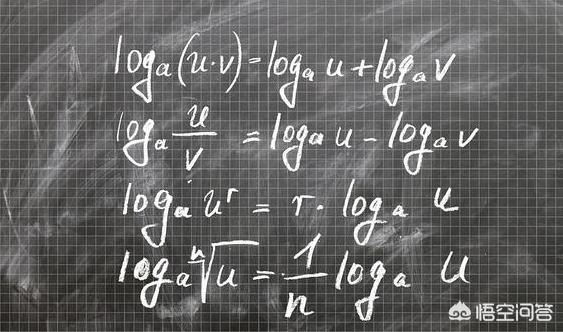 logₐ(u·v)=logₐ u+logₐ v
logₐ u/v = logₐ u - logₐ v
logₐ uʳ = r· logₐ u
logₐ ⁿ√u = 1/n logₐ u
悟空问答